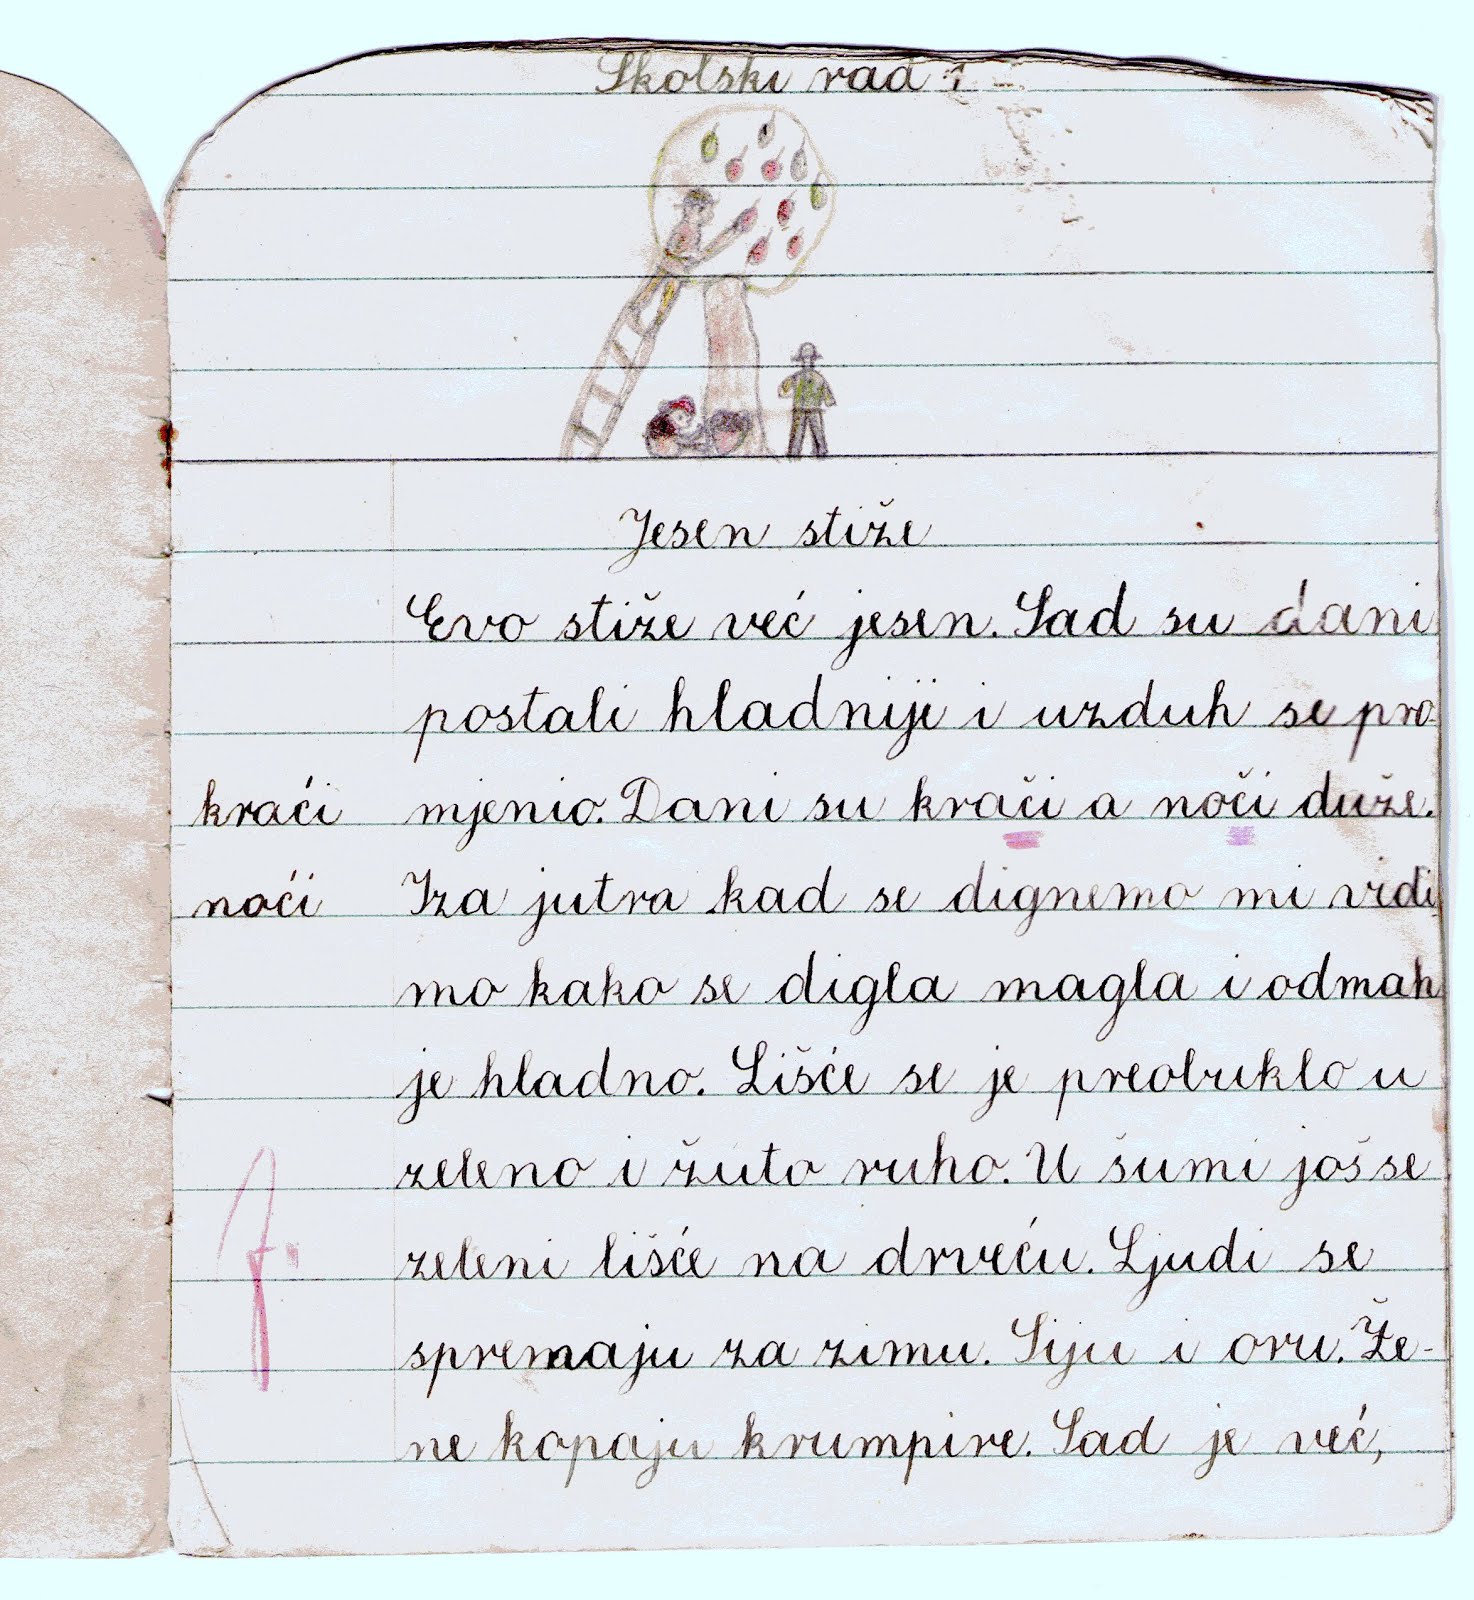 Školski rad
Jesen stiže
Evo stiže već jesen. Sad su dani
postali hladniji i uzduh se pro-
kraći mjenio. Dani su krači a noči duže.
noći Iza jutra kad se dignemo mi vidi
mo kako se digla magla i odmah
je hladno. Lišće se je preobuklo u
zeleno i žuto ruho. U šumi još se
zeleni lišće na drveću. Ljudi se
spremaju za zimu. Siju i oru. Že-
ne kopaju krumpire. Sad je već,